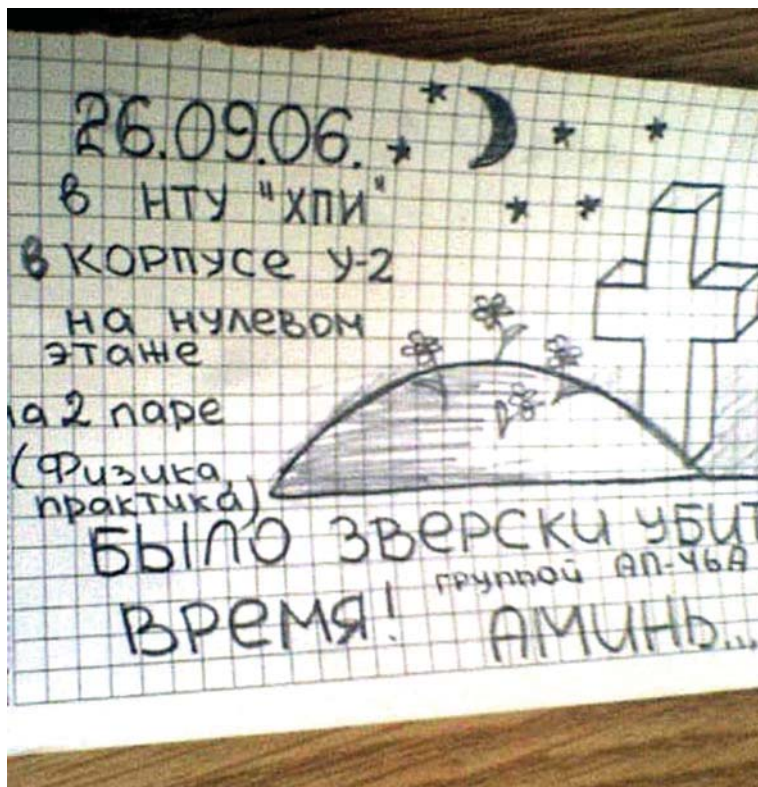 26.09.06.
в НТУ "ХПИ"
в корпусе У-2
на нулевом
этаже
на 2 паре
(Физика,
практика)
БЫЛО ЗВЕРСКИ УБИТ
группой АП-46А
ВРЕМЯ!
АМИНЬ...